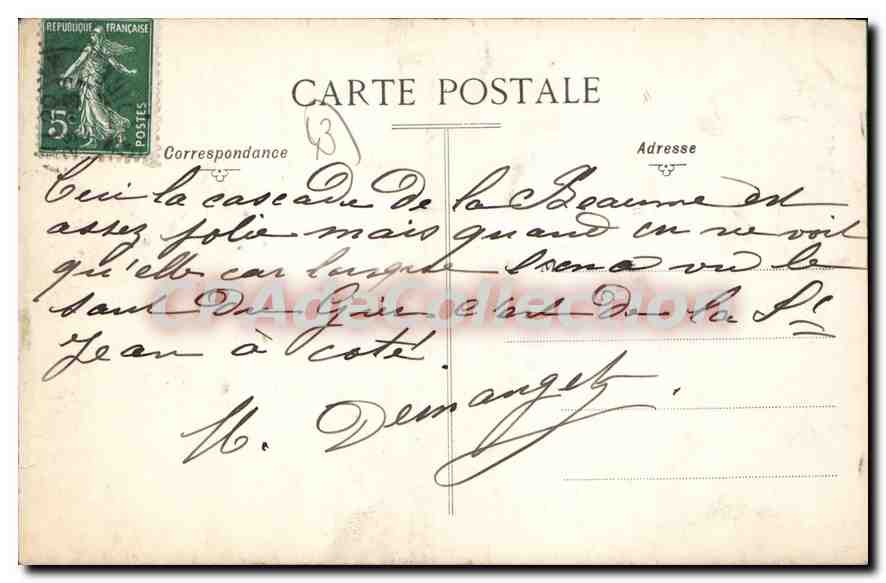 RÉPUBLIQUE FRANÇAISE
5c
POSTES
CARTE POSTALE
53
Correspondance
Adresse
la cascade de la Beaume est
assez jolie mais quand on ne voit
qu'elle car lorsque l'on a vu le
saut du Gier c'est de la St
Jean à coté.
CPAdeCollection
H. Demanget.